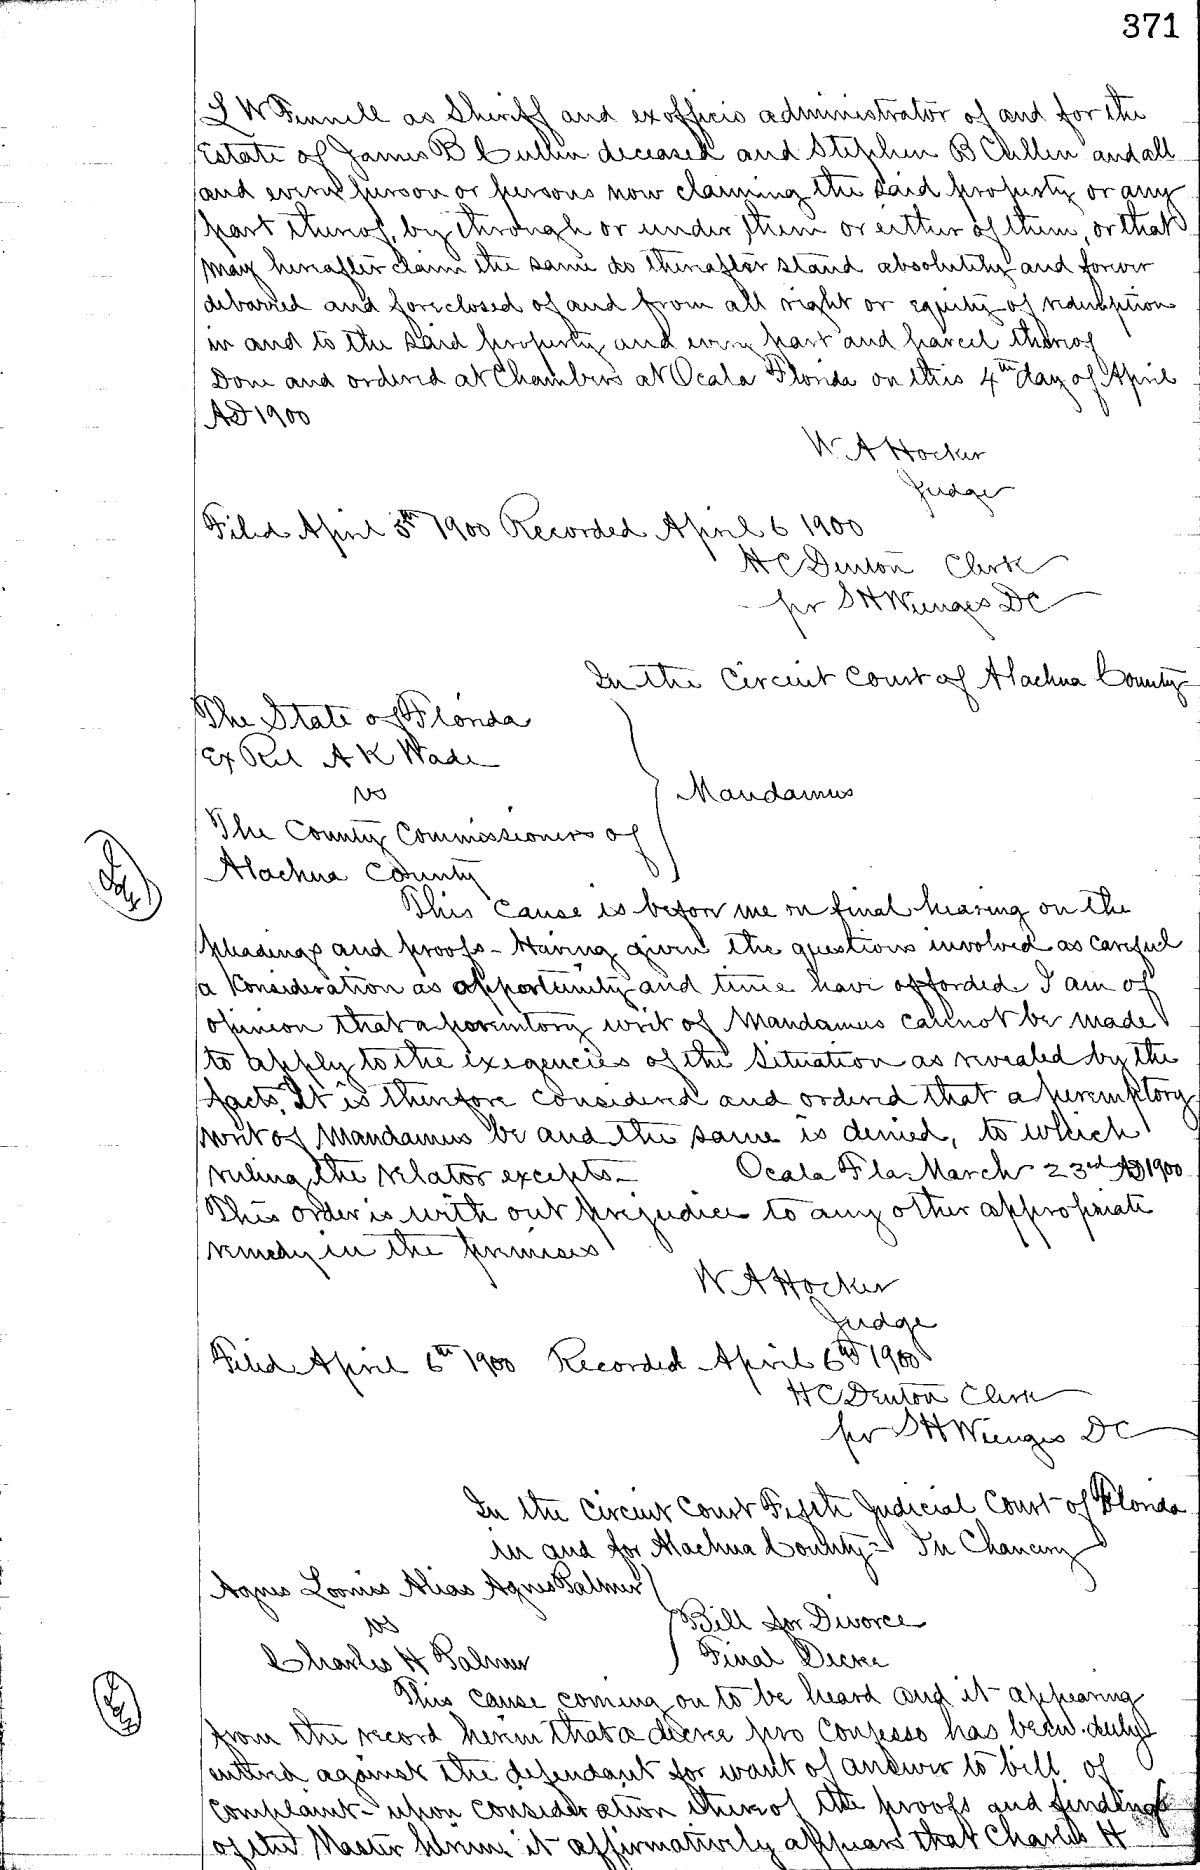 371
L W Fennell as Sheriff and exofficio administrator of and for the
Estate of James B Cullen deceased and Stephen B Cullen and all
and every person or persons now claiming the said property or any
part thereof, by through or under them or either of them, or that
may hereafter claim the same do thereafter stand absolutely and forever
debarred and foreclosed of and from all right or equity of redemption
in and to the said property and every part and parcel thereof
Done and ordered at Chambers at Ocala Florida on this 4th day of April
AD 1900
W A Hocker
Judge
Filed April 5th 1900 Recorded April 6 1900
H C Denton Clerk
per S H Wienges DC
In the Circuit Court of Alachua County
The State of Florida
Ex Rel A K Wade
vs
Mandamus
The County Commissioners of
Alachua County
This cause is before me on final hearing on the
pleadings and proofs - Having given the questions involved as careful
a Consideration as opportunity and time have afforded I am of
opinion that a peremtory writ of Mandamus cannot be made
to apply to the exegencies of the Situation as revealed by the
facts. It is therefore considered and ordered that a peremptory
writ of Mandamus be and the same is denied, to which
ruling the relator excepts - Ocala Fla March 23rd AD 1900
This order is with out prejudice to any other appropriate
remedy in the premises
W A Hocker
Judge
Filed April 6th 1900 Recorded April 6th 1900
H C Denton Clerk
per S H Wienges DC
In the Circuit Court Fifth Judicial Court of Florida
in and for Alachua County - In Chancery
Agnes Loomis Alias Agnes Palmer
vs
Bill for Divorce
Charles H Palmer
Final Decree
This cause coming on to be heard and it appearing
from the record herein that a decree pro confesso has been duly
entered against the defendant for want of answer to bill of
complaint - upon consideration thereof the proofs and findings
of the Master herein it affirmatively appears that Charles H